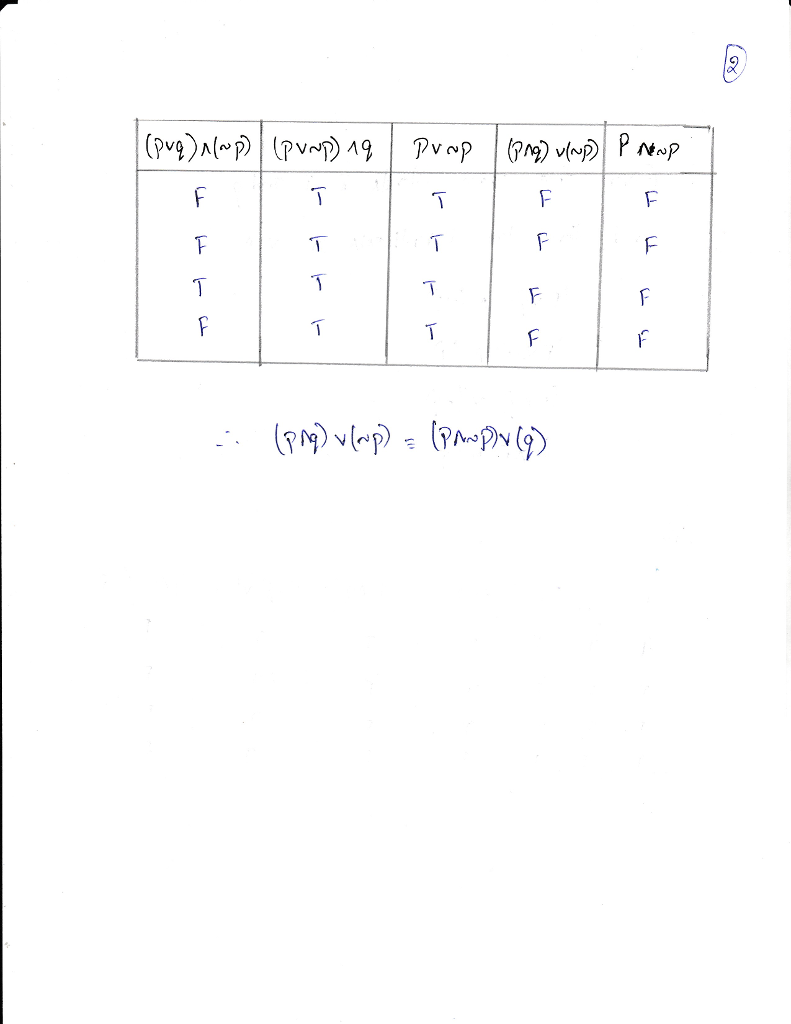 2
(p∨q)∧(~p) (p∨~p)∧q p∨~p (p∧q)∨(~p) P∧~p
F T T F F
F T T F F
T T T F F
F T T F F
∴ (p∧q)∨(~p) ≡ (p∧~p)∨(q)